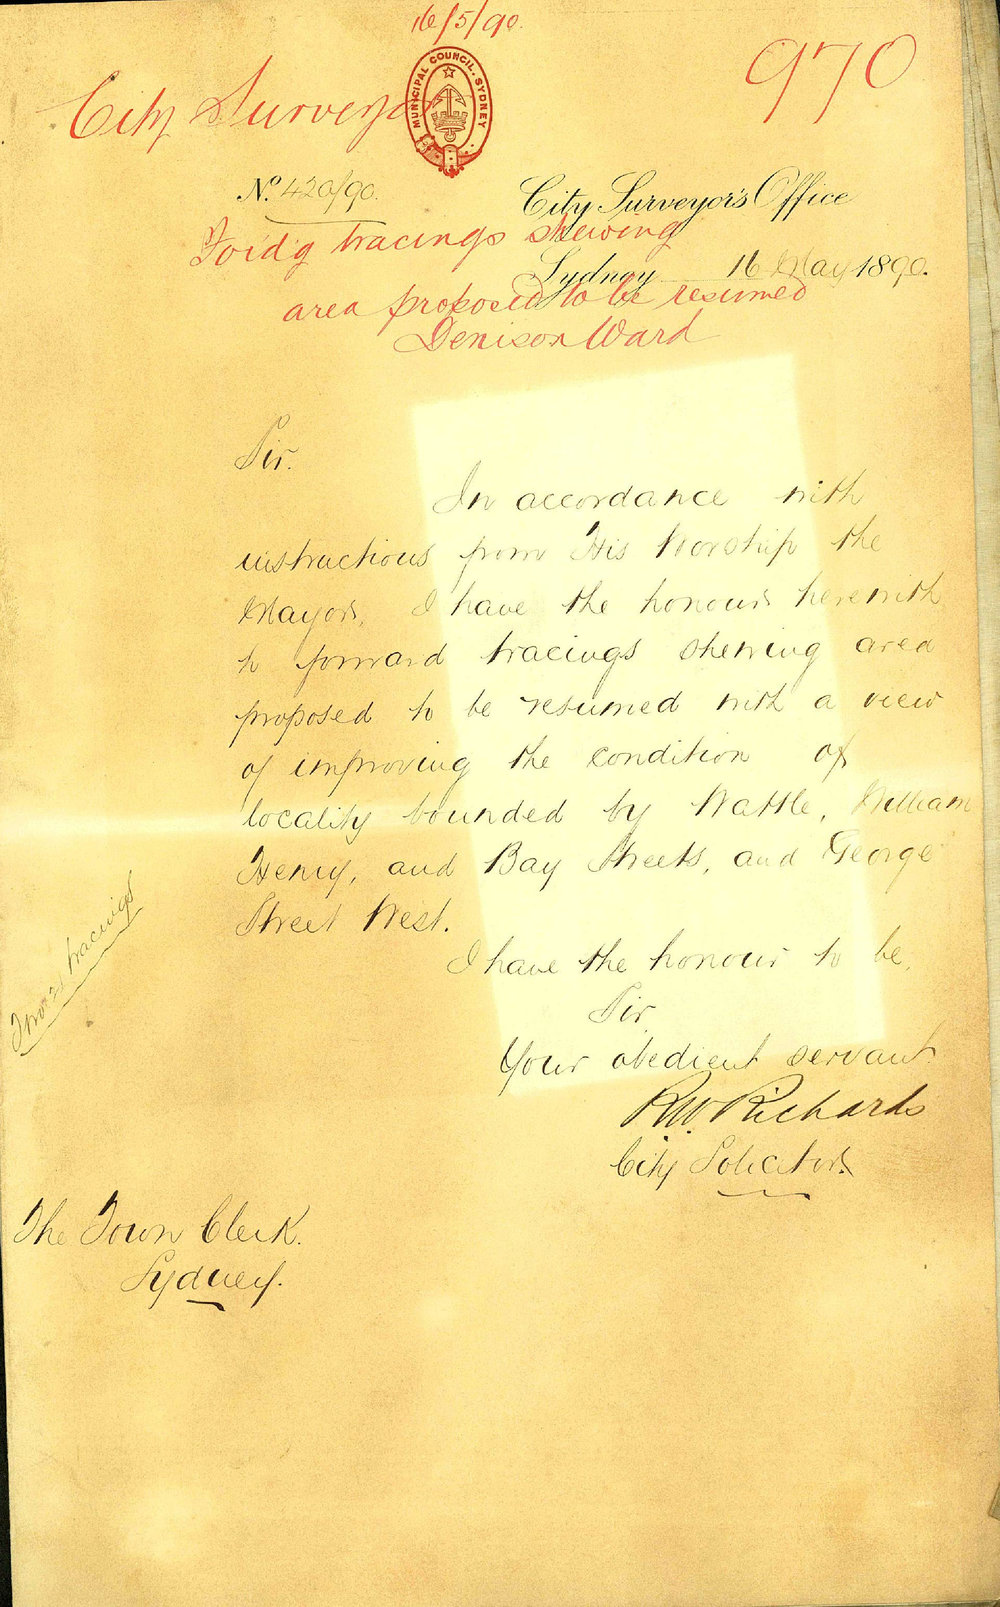 16/5/90.
970
City Surveyor
MUNICIPAL COUNCIL, SYDNEY
No. 420/90.
City Surveyor's Office
Forwdg tracings shewing
Sydney 16 May 1890.
area proposed to be resumed
Denison Ward
Sir.
In accordance with
instructions from His Worship the
Mayor, I have the honour herewith
to forward tracings shewing area
proposed to be resumed with a view
of improving the condition of
locality bounded by Wattle, William
Henry, and Bay Streets, and George
Street West.
I have the honour to be,
Sir
Your obedient servant
RW. Richards
City Solicitor
The Town Clerk.
Sydney.
tracings